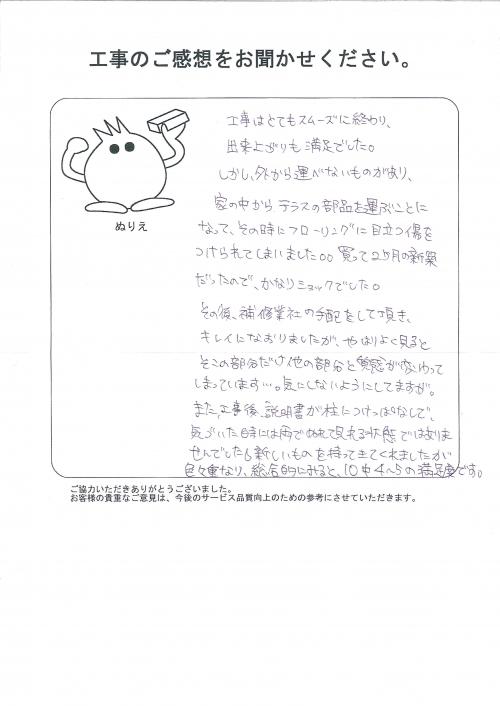 工事のご感想をお聞かせください。
工事はとてもスムーズに終わり、
出来上がりも満足でした。
しかし、外から運べないものがあり、
家の中から テラスの部品を運ぶことに
なって、その時にフローリングに目立つ傷を
つけられてしまいました。。買って2ヶ月の新築
だったので、かなりショックでした。
その後、補修業社の手配をして頂き、
キレイになおりましたが、やはりよく見ると
そこの部分だけ他の部分と質感が変わって
しまっています…。気にしないようにしてますが。
また、工事後、説明書が柱につけっぱなしで、
気づいた時には雨でぬれて見れる状態ではありま
せんでした。新しいものを持ってきてくれましたが
色々重なり、総合的にみると、10中4~5の満足度です。
ぬりえ
ご協力いただきありがとうございました。
お客様の貴重なご意見は、今後のサービス品質向上のための参考にさせていただきます。